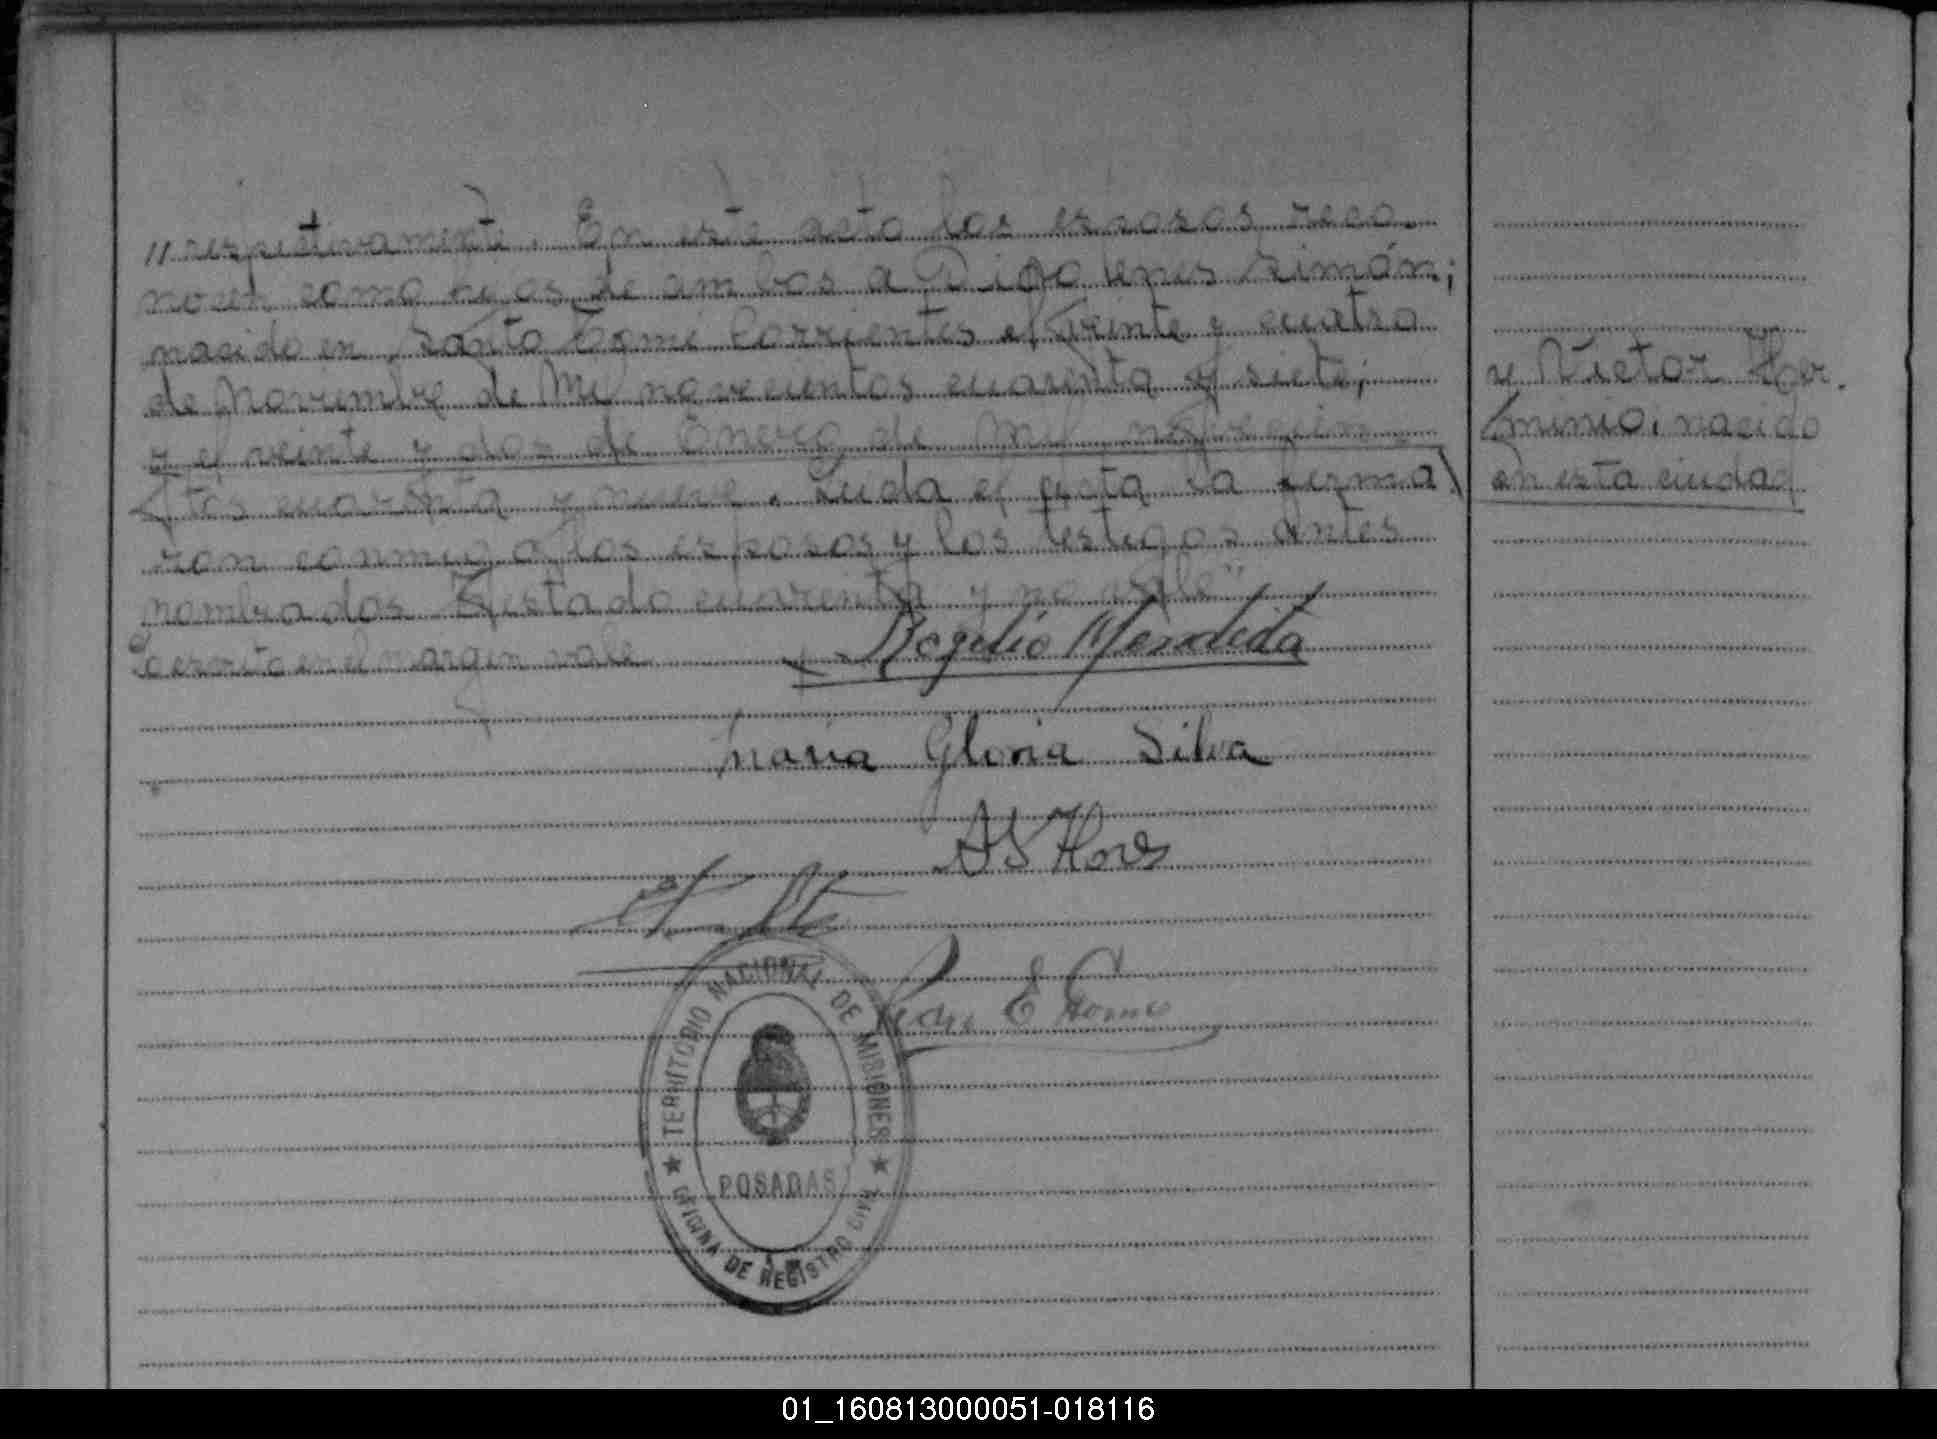 " respectivamente. En este acto los esposos reco-
nocen como hijos de ambos a Diogenes Simón;
nacido en Santo Tomé Corrientes el veinte y cuatro
de Noviembre de Mil novecientos cuarenta y siete;
y el veinte y dos de Enero de Mil novecien-
tos cuarenta y nueve. Leida el acta la firma
ron conmigo los esposos y los testigos antes
nombrados. Testado cuarenta y no vale"
Lo escrito en el margen vale
y Victor Her-
minio, nacido
en esta ciudad
Rogelio Mendieta
Maria Gloria Silva
TERRITORIO NACIONAL DE MISIONES
POSADAS
OFICINA DE REGISTRO CIVIL
01_160813000051-018116